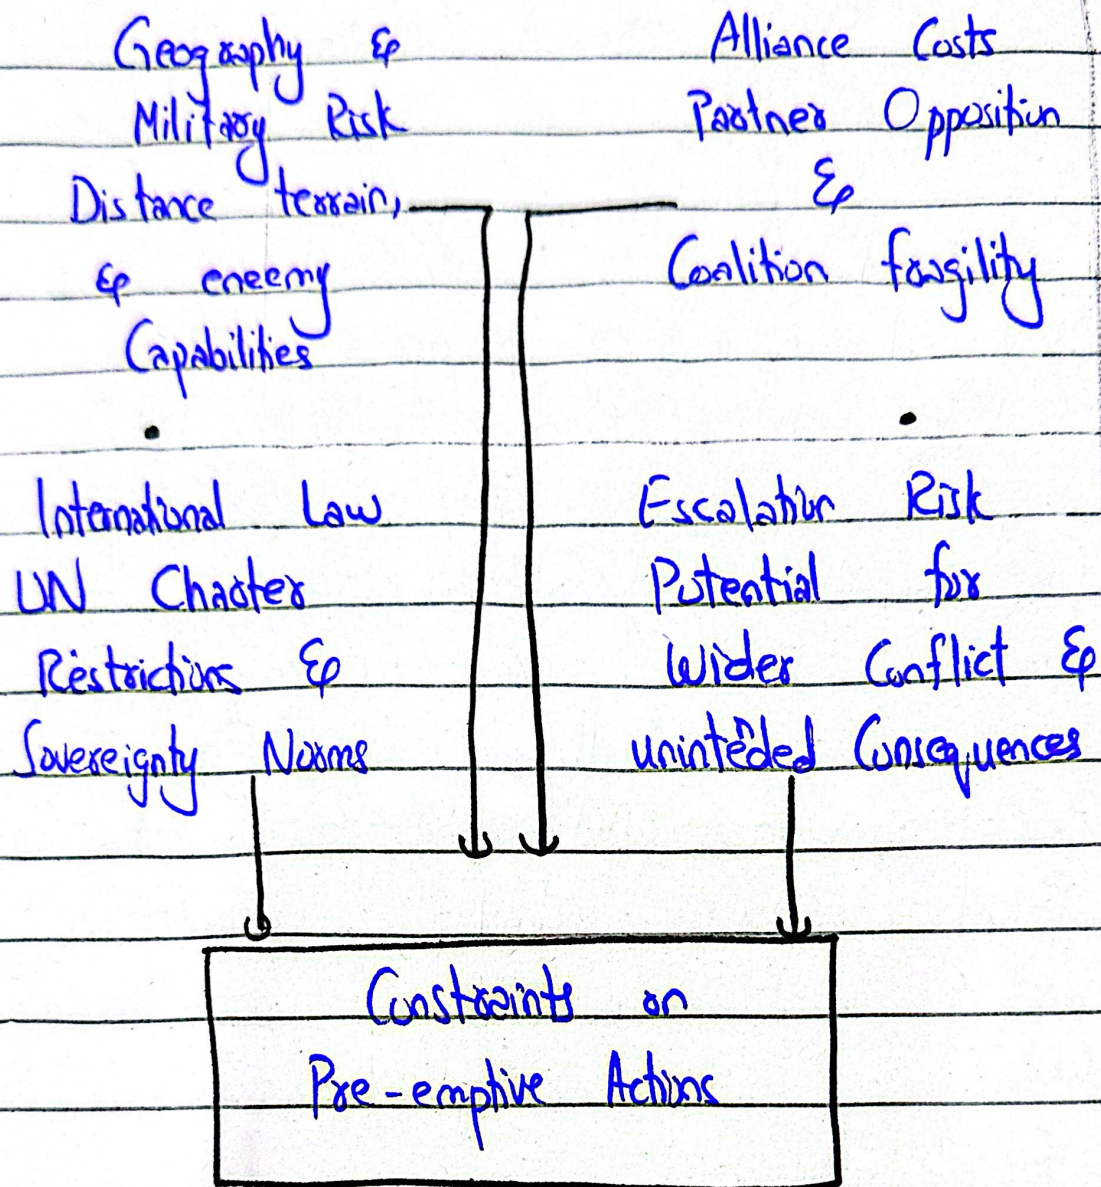 Geography &
Military Risk
Distance terrain,
& eneemy
Capabilities
Alliance Costs
Partner Opposition
&
Coalition fragility
International Law
UN Charter
Restrictions &
Sovereignty Norms
Escalation Risk
Potential for
Wider Conflict &
unintended Consequences
Constraints on
Pre-emptive Actions